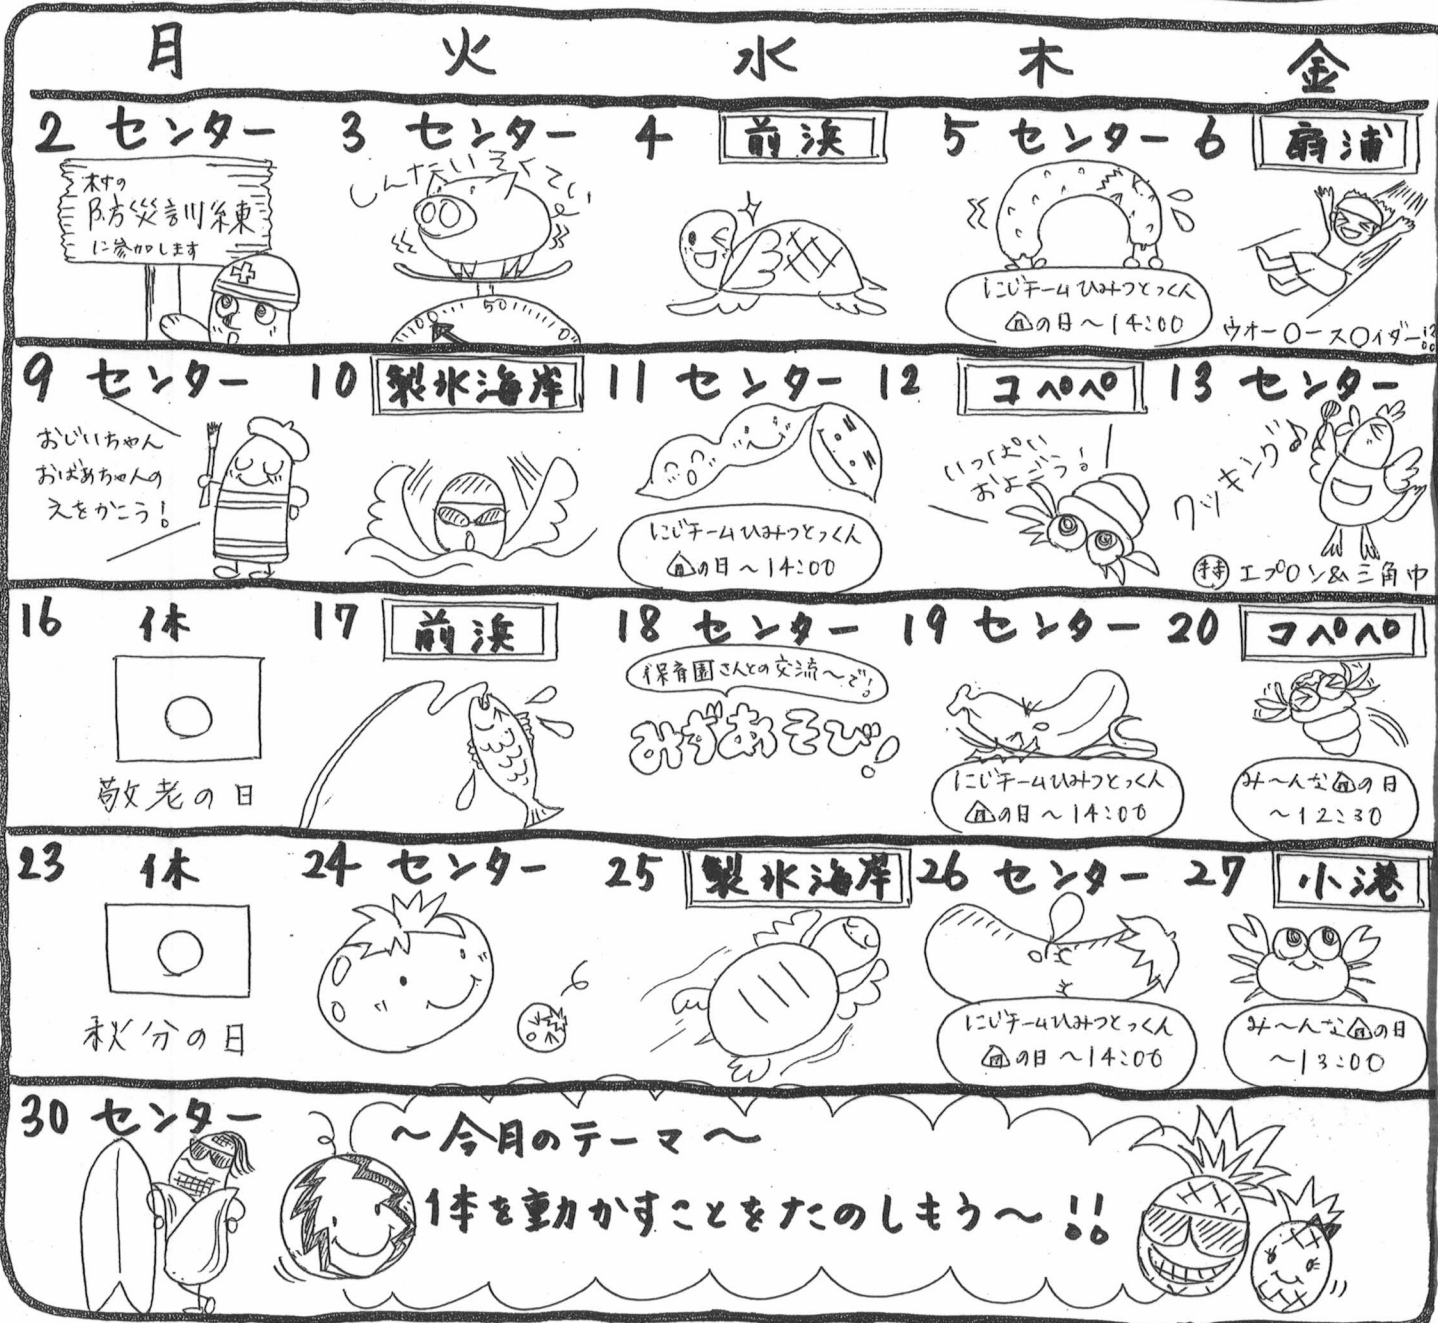 月 火 水 木 金
2 センター
村の
防災訓練
に参加します
3 センター
しんたいそくてい
100 50 0
4 前浜
5 センター
にじチームひみつとっくん
の日～14:00
6 扇浦
ウォー〇ース〇イダー!!
9 センター
おじいちゃん
おばあちゃんの
えをかこう!
10 製氷海岸
11 センター
にじチームひみつとっくん
の日～14:00
12 コペペ
いっぱい
およごう!
13 センター
クッキング♪
持 エプロン&三角巾
16 休
敬老の日
17 前浜
18 センター
保育園さんとの交流～で!
みずあそび!
19 センター
にじチームひみつとっくん
の日～14:00
20 コペペ
み～んなの日
～12:30
23 休
秋分の日
24 センター
25 製氷海岸
26 センター
にじチームひみつとっくん
の日～14:00
27 小港
み～んなの日
～13:00
30 センター
～今月のテーマ～
体を動かすことをたのしもう～!!